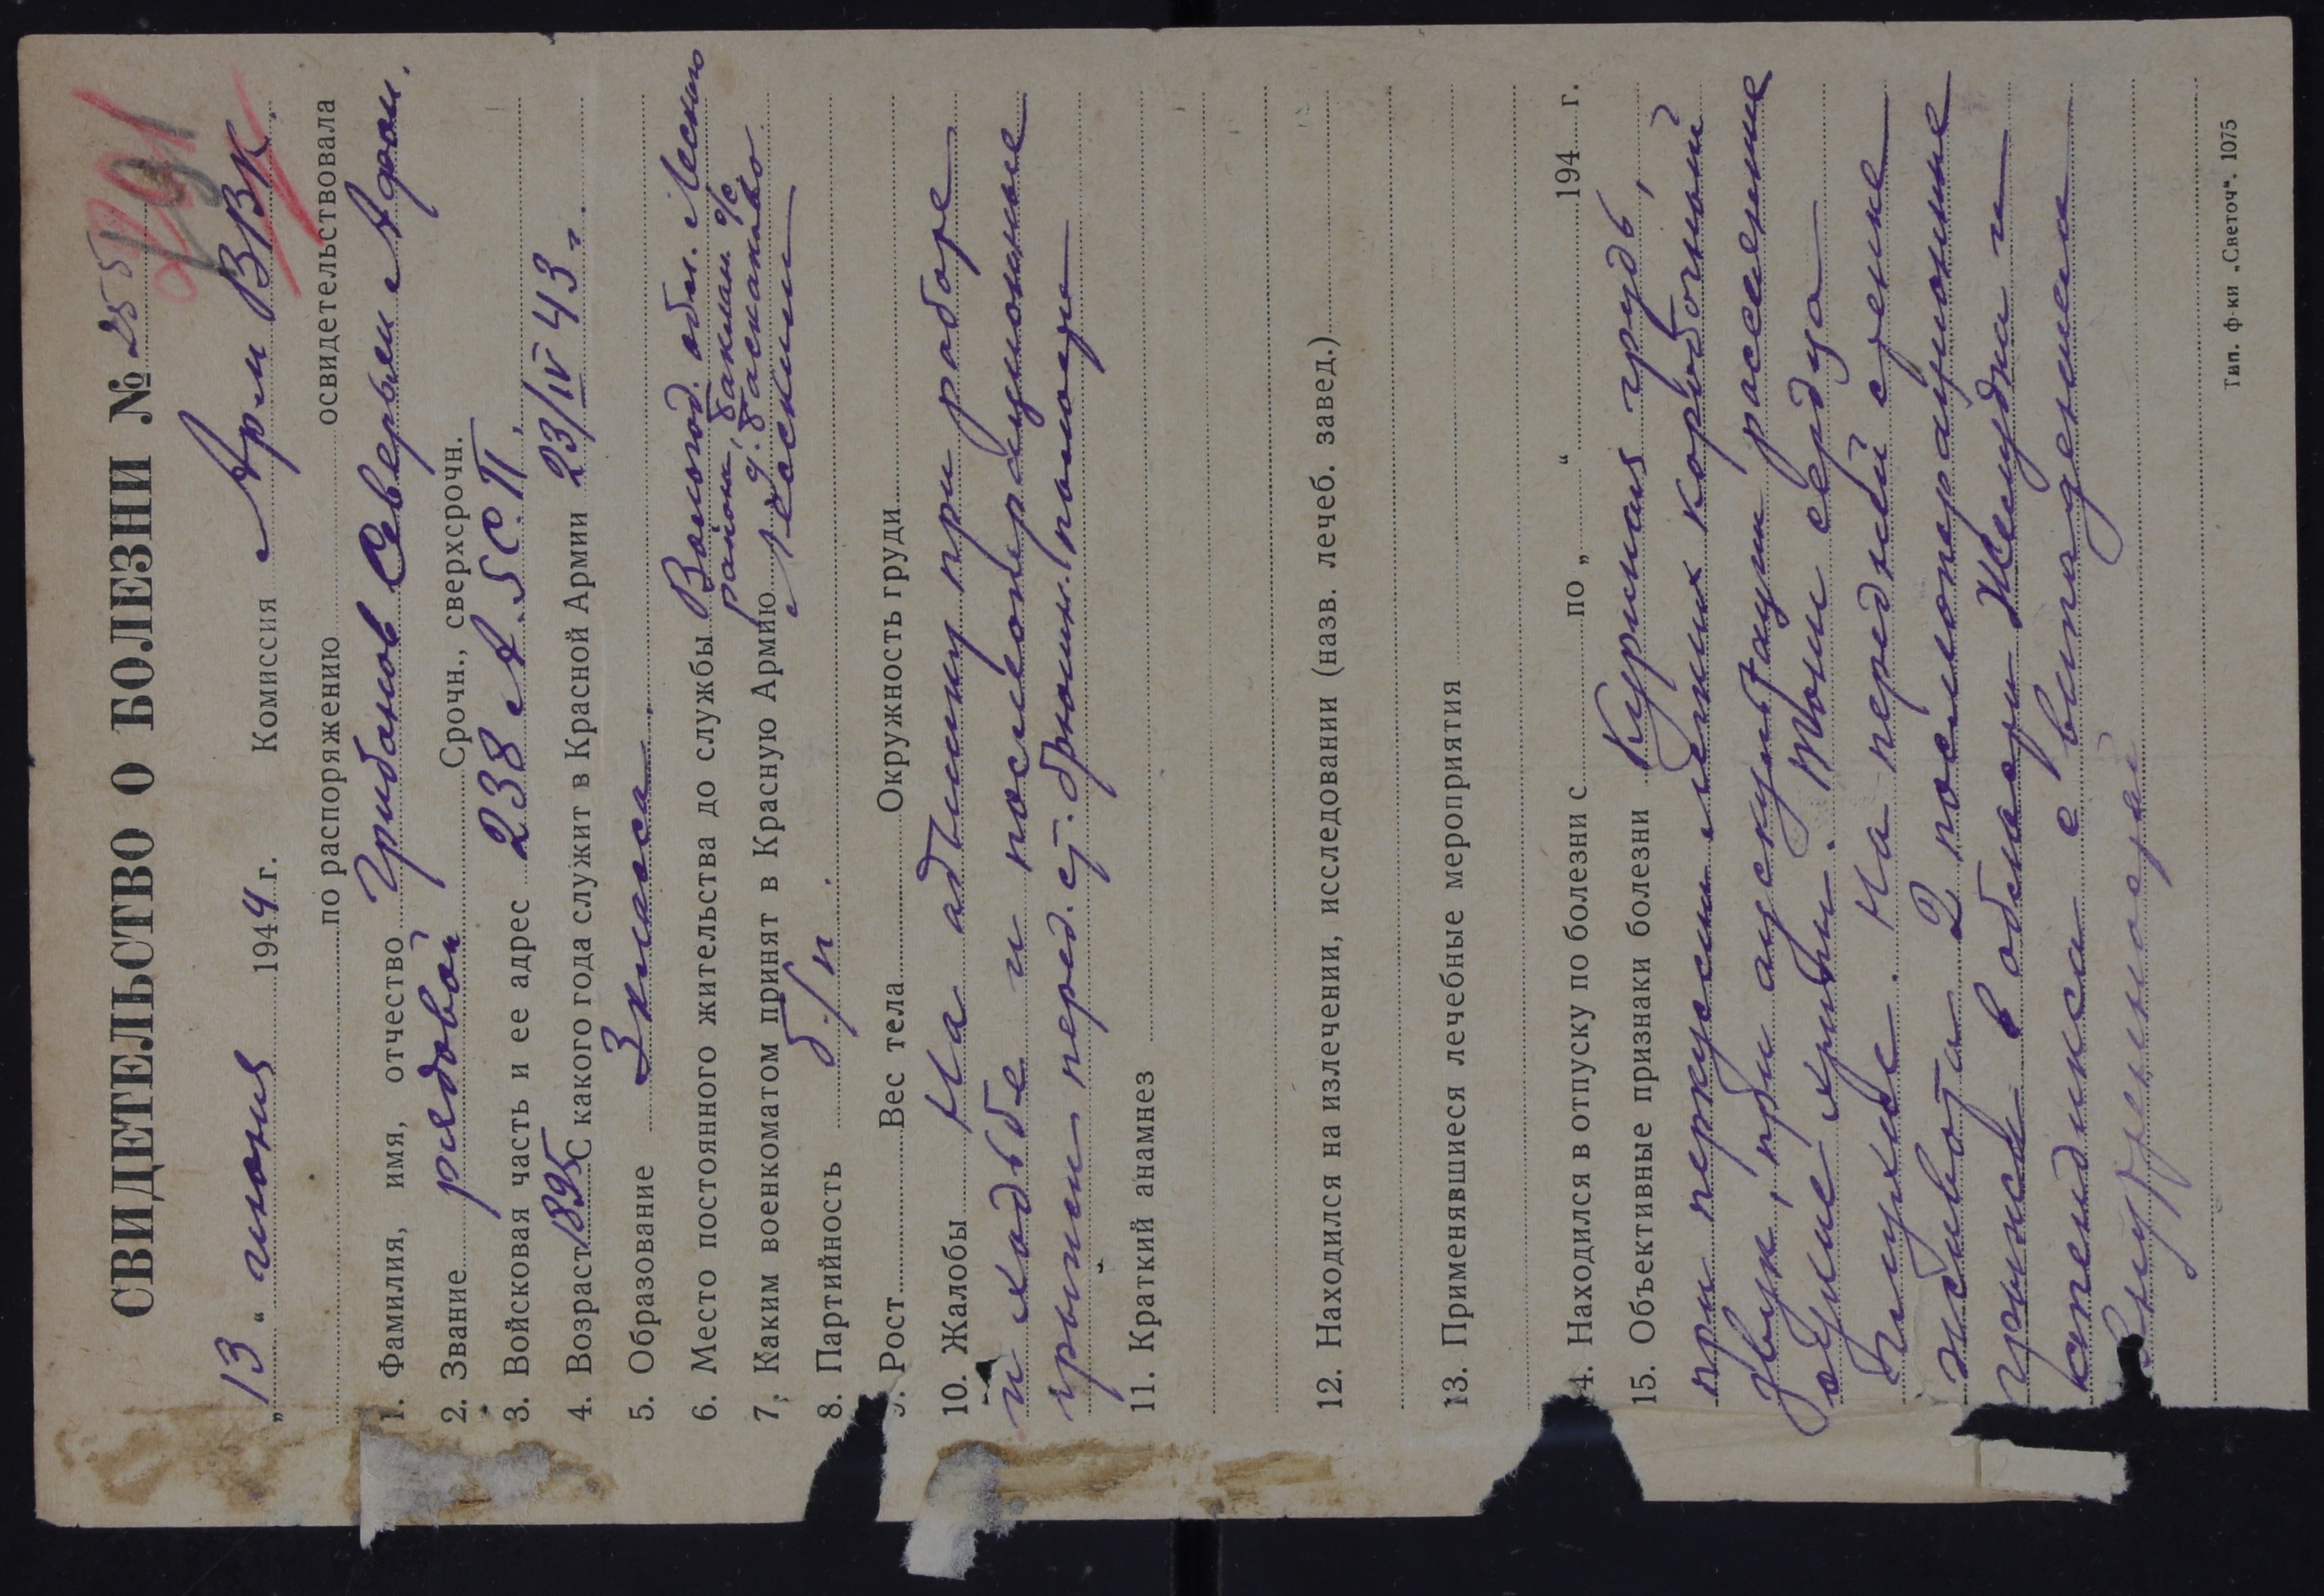 СВИДЕТЕЛЬСТВО О БОЛЕЗНИ № 255
291
„13“ июня 1944 г. Комиссия Арм ВВК
по распоряжению освидетельствовала
1. Фамилия, имя, отчество Грибанов Северьян Афан.
2. Звание рядовой Срочн., сверхсрочн.
3. Войсковая часть и ее адрес 238 А.З.С.П.
4. Возраст 1895 С какого года служит в Красной Армии 23/IV 43 г.
5. Образование 3 класса.
6. Место постоянного жительства до службы Вологод. обл. Леским
район, с/с
7. Каким военкоматом принят в Красную Армию д.
Леским
8. Партийность б/п.
9. Рост Вес тела Окружность груди
10. Жалобы На адышку при работе
и ходьбе и послеоперационные
грыжи перед. ст. брюшн. полости
11. Краткий анамнез
12. Находился на излечении, исследовании (назв. лечеб. завед.)
13. Применявшиеся лечебные мероприятия
14. Находился в отпуску по болезни с по „ “ 194 г.
15. Объективные признаки болезни Куриная грудь,
при перкусии легких коробочный
звук, при аускультации рассеенные
сухие хрипы. Тоны сердца
глухие. На передней стенке
живота 2 послеоперационные
грыжи в области желудка и
апендикса с выпадением
внутренностей
Тип. ф-ки „Светоч“. 1075